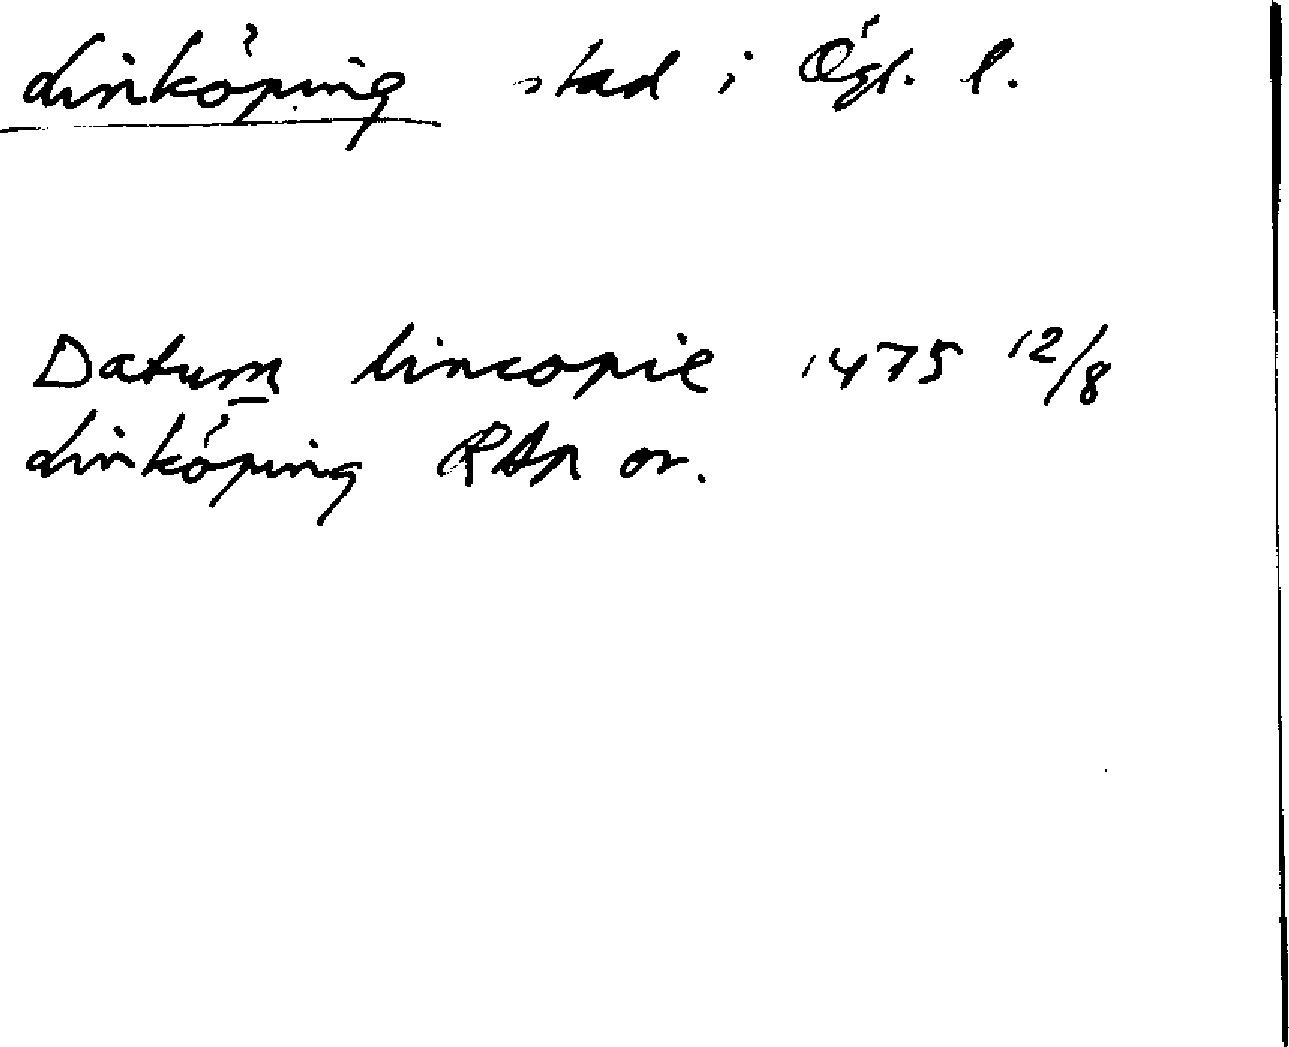 Linköping stad i Ögl. l.
Datum lincopie 1475 12/8
Linköping RAp or.